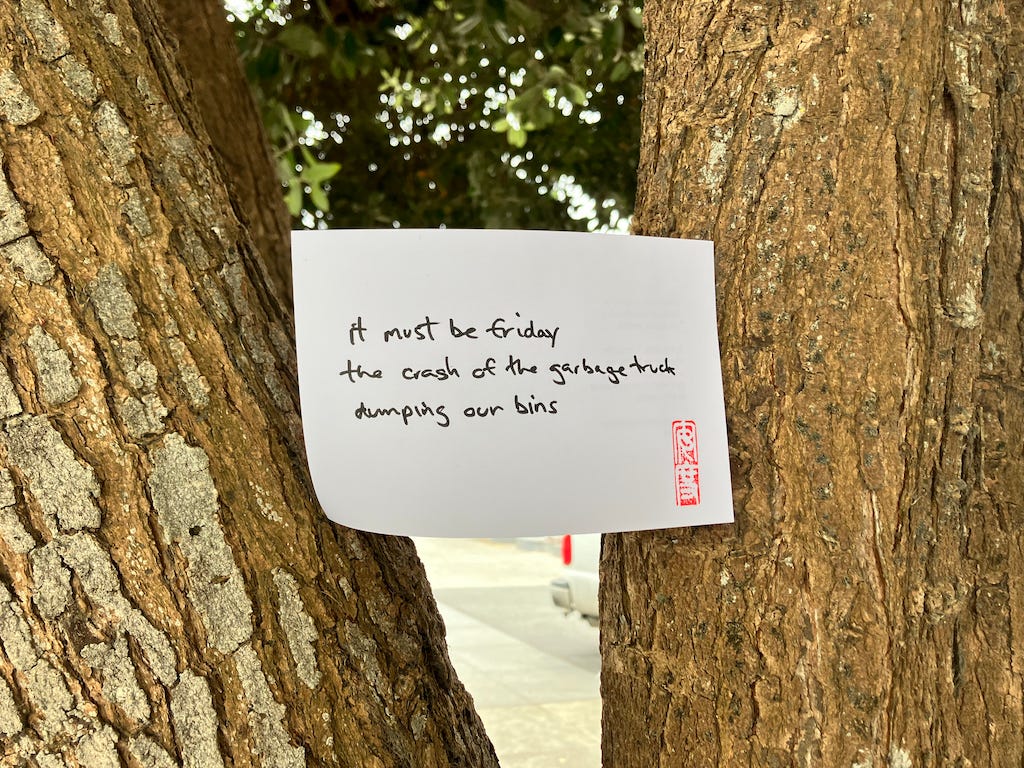 it must be friday
the crash of the garbage truck
dumping our bins